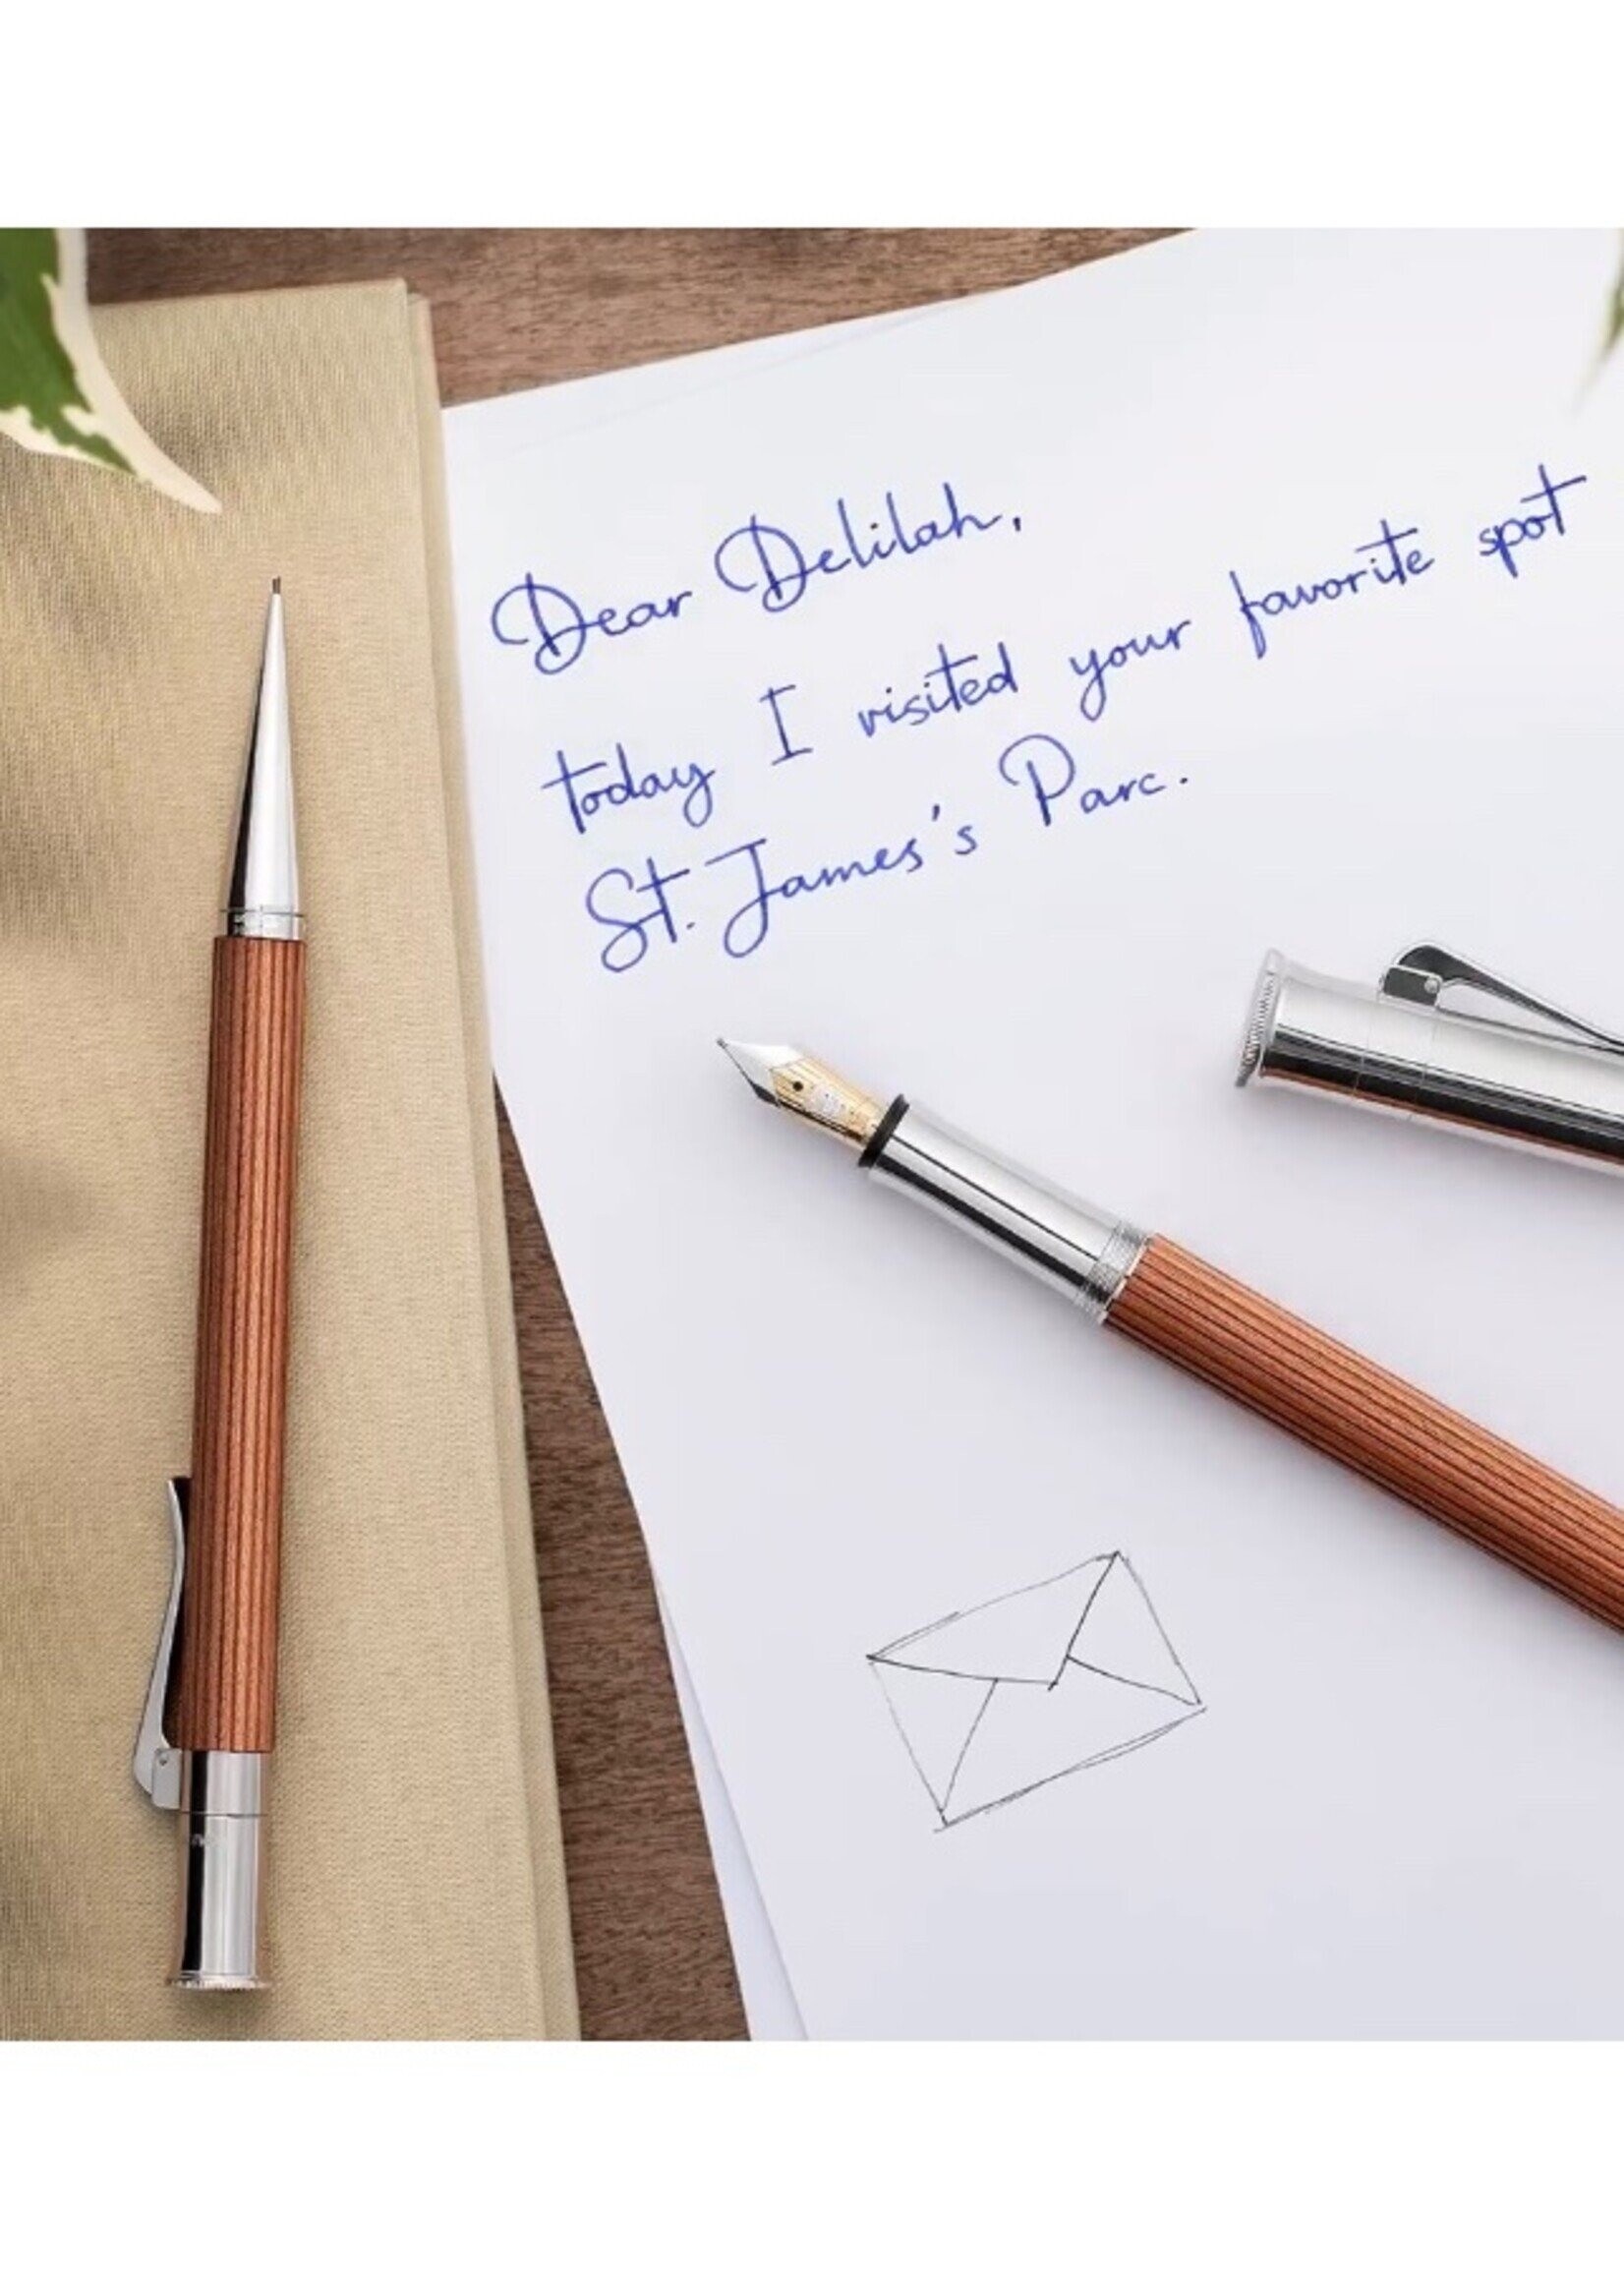 Dear Delilah,
today I visited your favorite spot
St. James's Parc.